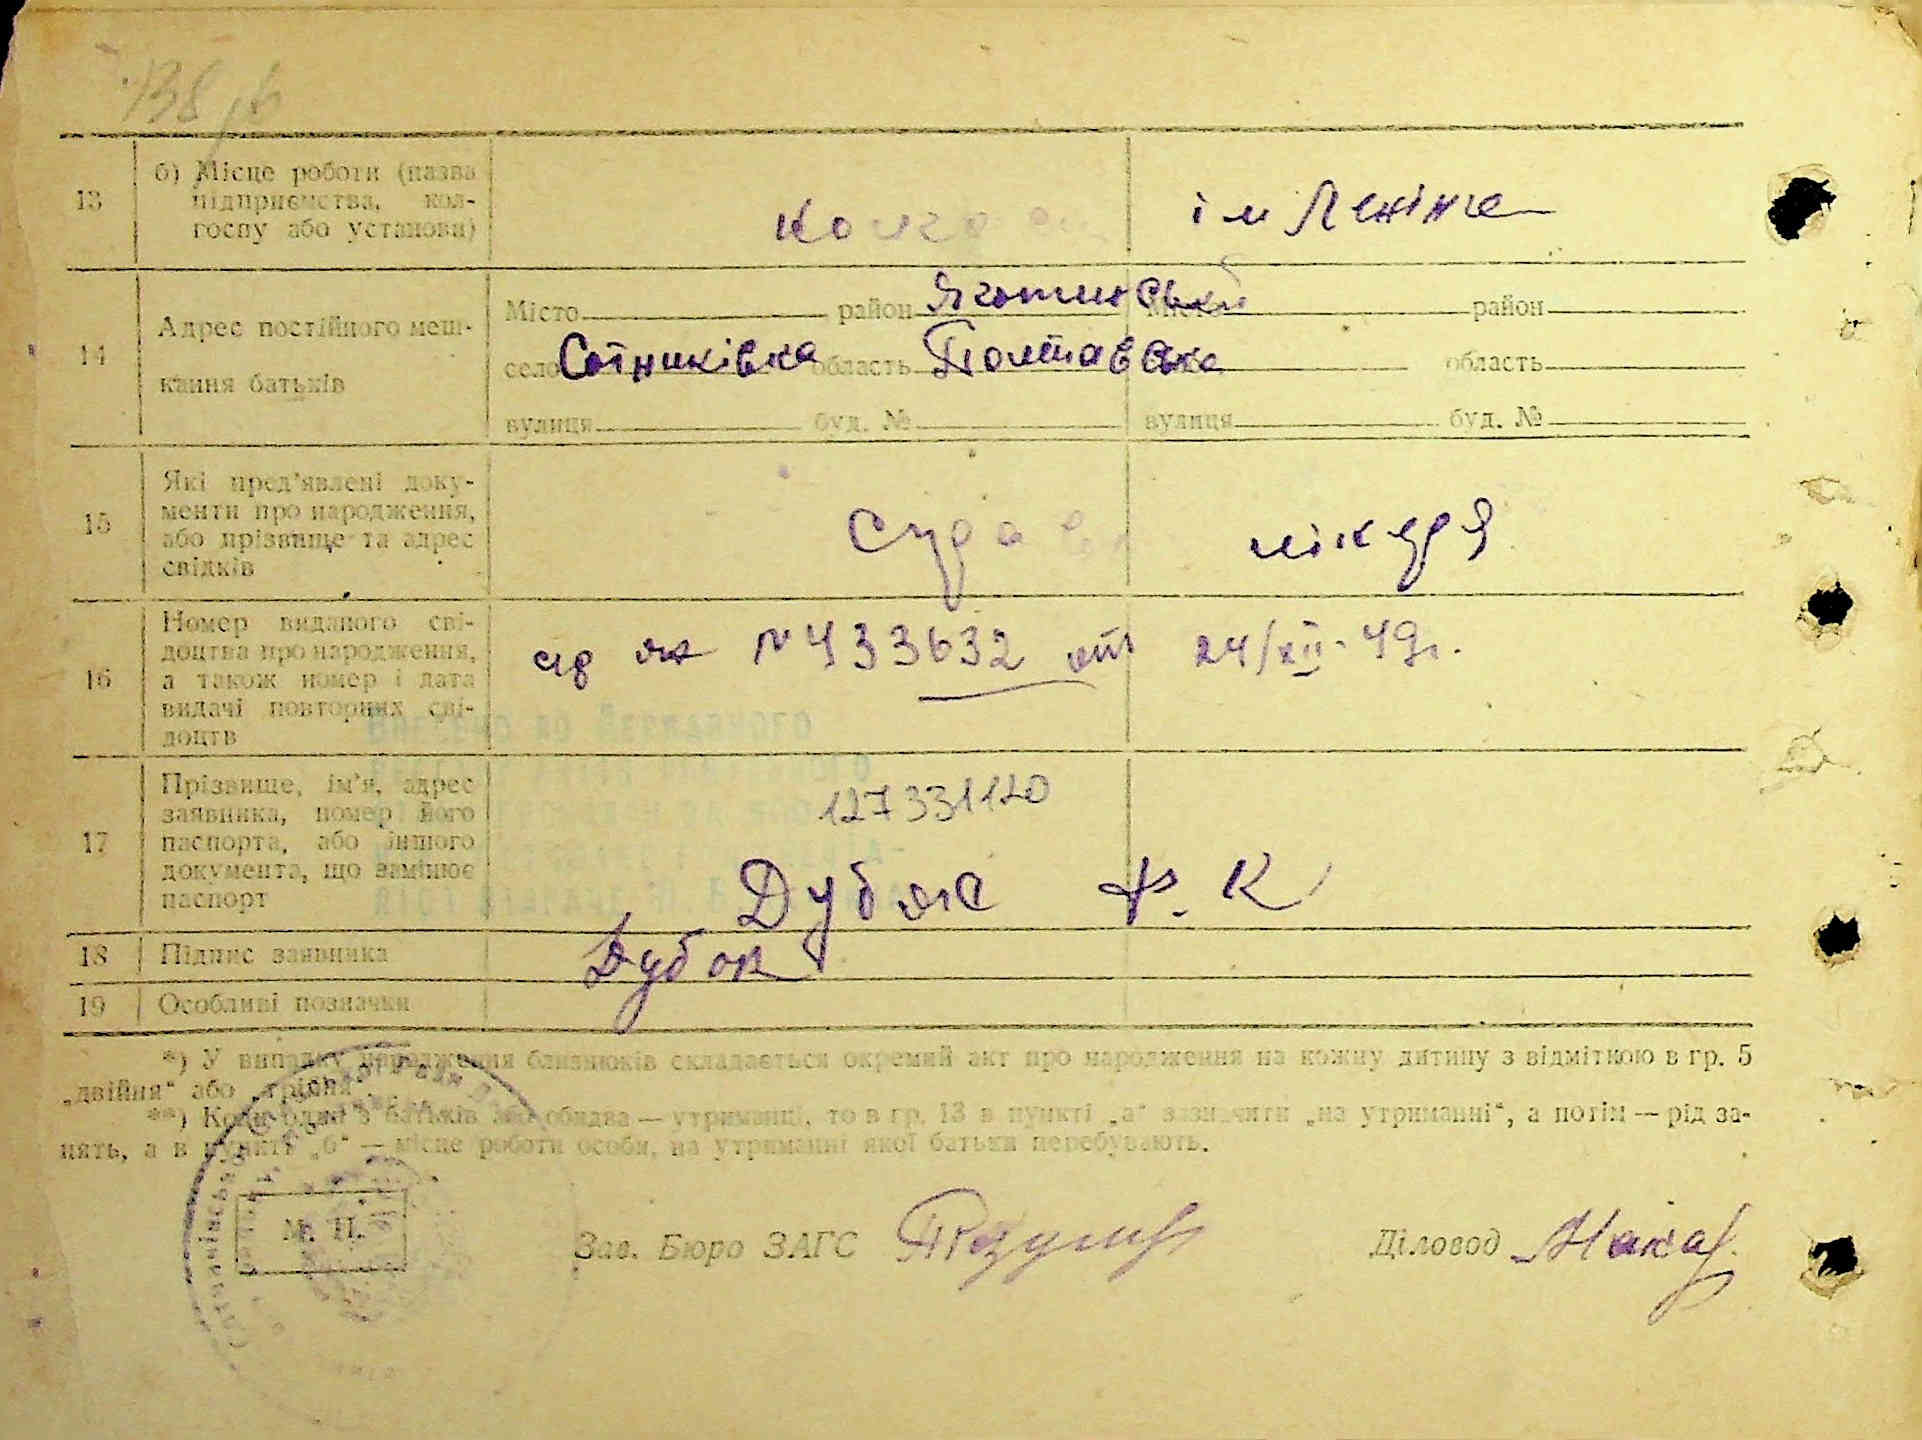 138
13
б) Місце роботи (назва
підприємства, кол-
госпу або установи)
ім Леніна
14
Адрес постійного меш-
кання батьків
Місто район Яготинський Місто район
село Сотниківка область Полтавська область
вулиця буд. № вулиця буд. №
15
Які пред'явлені доку-
менти про народження,
або прізвище та адрес
свідків
лікаря
16
Номер виданого сві-
доцтва про народження,
а також номер і дата
видачі повторних сві-
доцтв
№ 433632 от 24/XII-49г.
Внесено до Державного
17
Прізвище, ім'я, адрес
заявника, номер його
паспорта, або іншого
документа, що замінює
паспорт
127331120
Дубяк Ф. К
18
Підпис заявника
Дубок
19
Особливі позначки
*) У випадку народження близнюків складається окремий акт про народження на кожну дитину з відміткою в гр. 5
„двійня“ або „трійня“.
**) Коли один з батьків або обидва — утриманці, то в гр. 13 в пункті „а“ зазначити „на утриманні“, а потім — рід за-
нять, а в пункті „б“ — місце роботи особи, на утриманні якої батьки перебувають.
М. П.
Зав. Бюро ЗАГС
Діловод